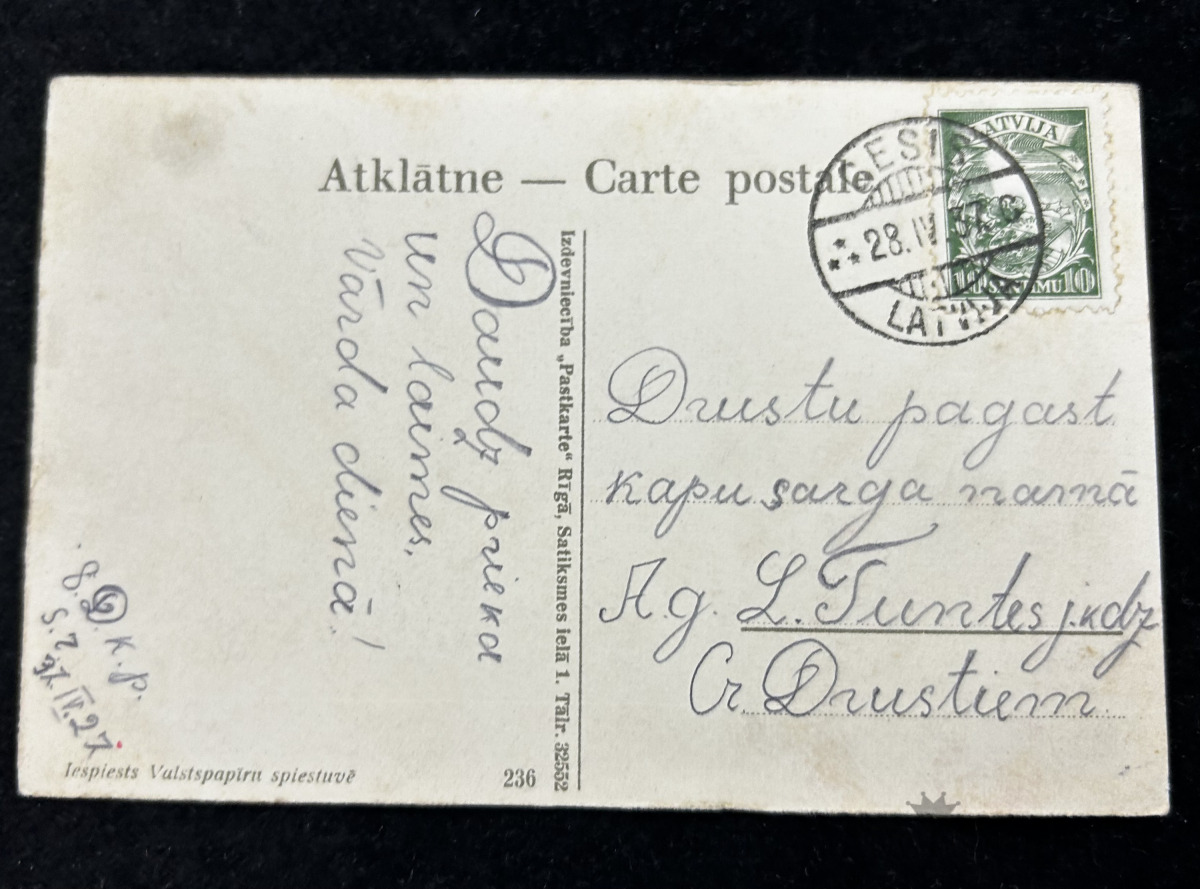 Atklātne — Carte postale
CESIS
28.IV.37. C
LATVIJA
LATVIJA
10 SANTIMU 10
Daudz prieka
un laimes,
Vārda dienā!
Izdevniecība „Pastkarte“ Rīgā, Satiksmes ielā 1. Tālr. 32552
Drustu pagast
kapu sarga namā
Ag. L. Tuntes j.kdz
Cr. Drustiem
K. p.
IV. 27.
Iespiests Valstspapīru spiestuvē
236